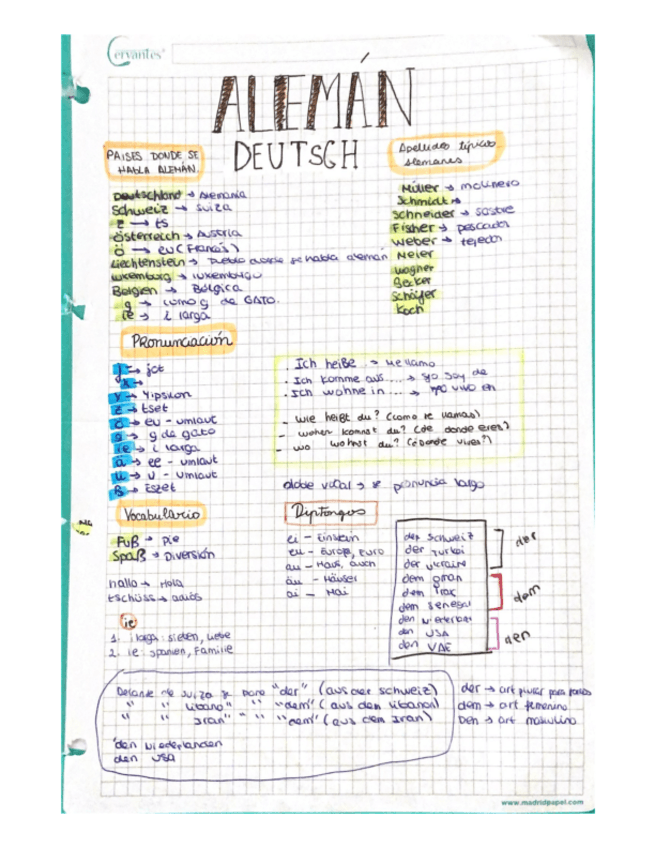 Cervantes
ALEMÁN
DEUTSCH
PAISES DONDE SE
HABLA ALEMÁN.
Deutschland → Alemania
Schweiz → suiza
z → ts
österreich → Austria
ö → eu (Francés)
Liechtenstein → Pueblo donde se habla alemán
Luxemburg → luxemburgo
Belgien → Bélgica
g → como g de GATO.
ie → i larga
Apellidos típicos
alemanes
Müller → molinero
Schmidt →
Schneider → sastre
Fisher → pescador
Weber → tejedor
Meier
Wagner
Becker
Schäfer
Koch
PRonunciación
j → jot
x →
y → Yipsilon
z → tset
ö → eu - umlaut
g → g de gato
ie → i larga
ä → ee - umlaut
ü → u - umlaut
ß → Eszet
. Ich heiße → me llamo
. Ich komme aus.... → yo soy de
. Ich wohne in .... → yo vivo en
- wie heißt du? (como te llamas)
- woher kommst du? (de donde eres?)
- wo wohnst du? (¿Donde vives?)
doble vocal → se pronuncia largo
Vocabulario
Fuß → pie
Spaß → Diversión
hallo → Hola
tschüss → adiós
Diptongos
ei - Einstein
eu - Europa, Euro
au - Haus, auch
äu - Häuser
ai - Mai
der Schweiz
der Turkei
der Ucraine
dem Iran
dem Irak
dem Senegal
den
den USA
den VAE
der
dem
den
ie
1. i larga: sieben, Liebe
2. ie: spanien, Familie
Delante de suiza se pone "der" (aus der schweiz)
" " Libano" " "dem" (aus dem Libanon)
" " Iran" " " "dem" (aus dem Iran)
"den Niederlanden
den USA
der → art plural para
dem → art femenino
Den → art masculino
www.madridpapel.com